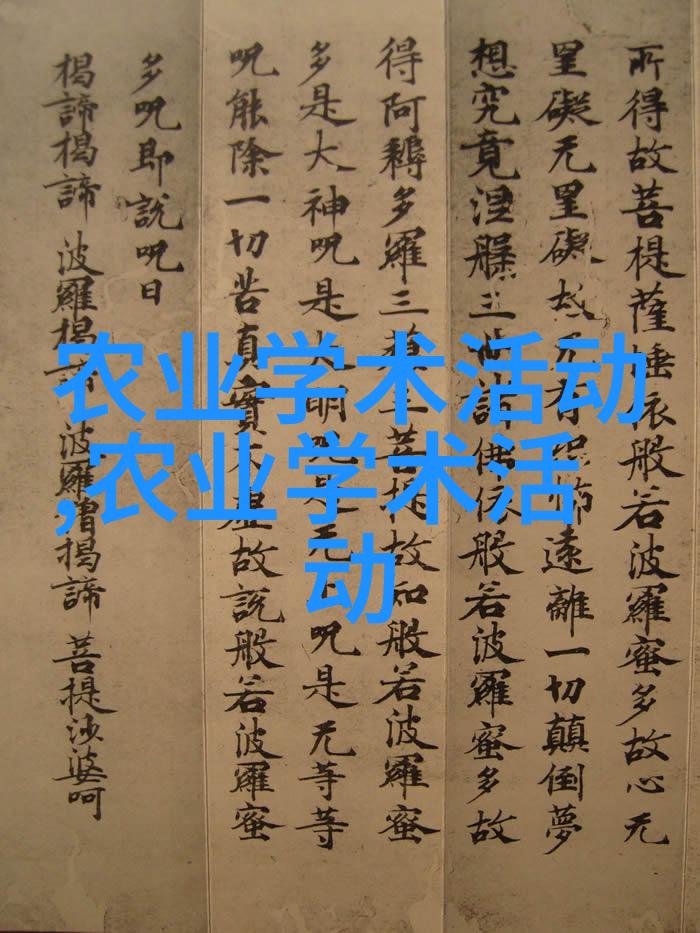 所得故菩提薩埵依般若波羅蜜多故心无
罣礙无罣礙故无有恐怖遠離一切顛倒夢
想究竟涅槃三世諸佛依般若波羅蜜多故
得阿耨多羅三藐三菩提故知般若波羅蜜
多是大神呪是大明呪是无上呪是无等等
呪能除一切苦真實不虛故說般若波羅蜜
多呪即說呪曰
揭諦揭諦 波羅揭諦 波羅僧揭諦 菩提沙婆呵
农业学术活动
,农业学术活
动